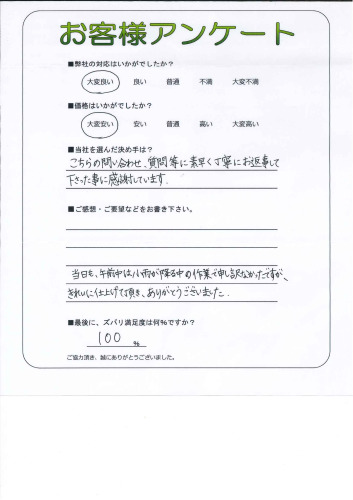 お客様アンケート
■弊社の対応はいかがでしたか？
大変良い 良い 普通 不満 大変不満
■価格はいかがでしたか？
大変安い 安い 普通 高い 大変高い
■当社を選んだ決め手は？
こちらの問い合わせ、質問等に素早く丁寧にお返事して
下さった事に感謝しています。
■ご感想・ご要望などをお書き下さい。
当日も、午前中は小雨が降る中の作業で申し訳なかったですが、
きれいに仕上げて頂き、ありがとうございました。
■最後に、ズバリ満足度は何％ですか？
100 %
ご協力頂き、誠にありがとうございました。